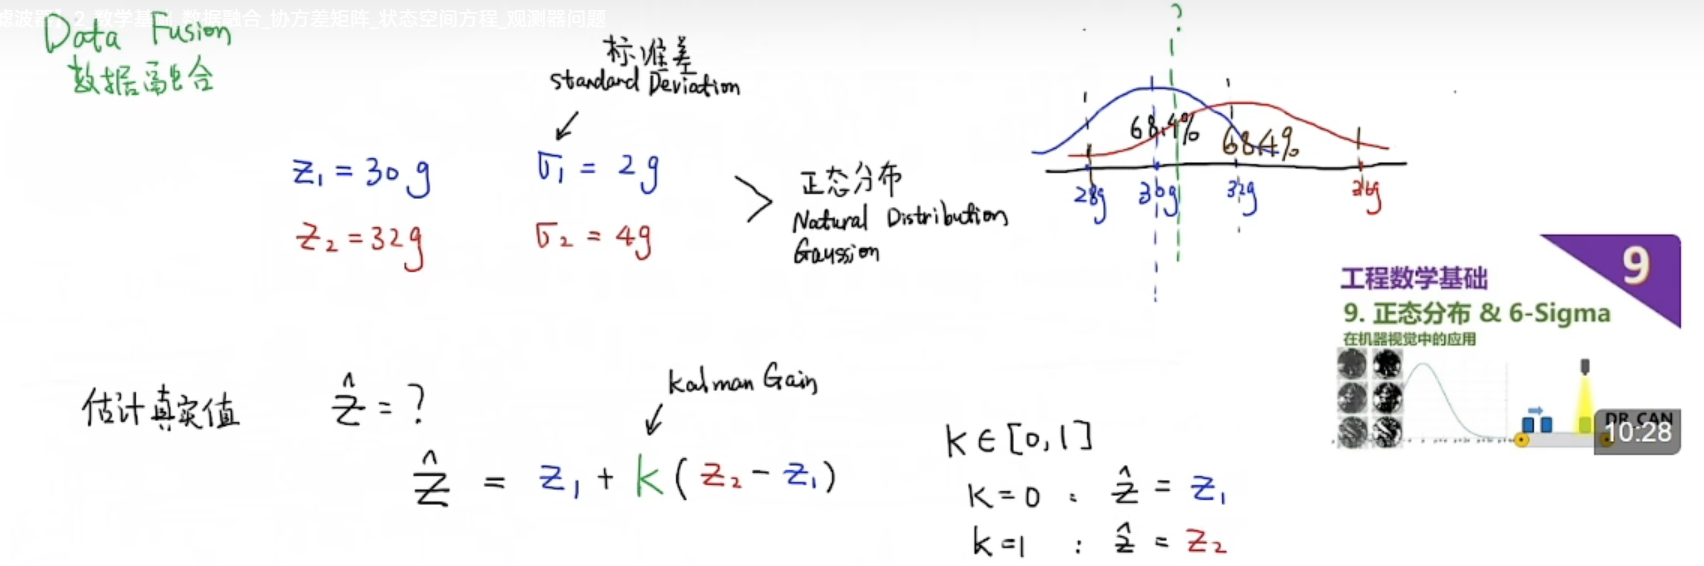 滤波器】2_数学基础_数据融合_协方差矩阵_状态空间方程_观测器问题
Data Fusion
数据融合
标准差
Standard Deviation
z₁ = 30g
σ₁ = 2g
z₂ = 32g
σ₂ = 4g
正态分布
Natural Distribution
Gaussion
?
68.4%
68.4%
28g
30g
32g
36g
工程数学基础
9
9. 正态分布 & 6-Sigma
在机器视觉中的应用
DR_CAN
10:28
估计真实值
ẑ = ?
Kalman Gain
ẑ = z₁ + k(z₂ - z₁)
k∈[0,1]
k=0 : ẑ = z₁
k=1 : ẑ = z₂